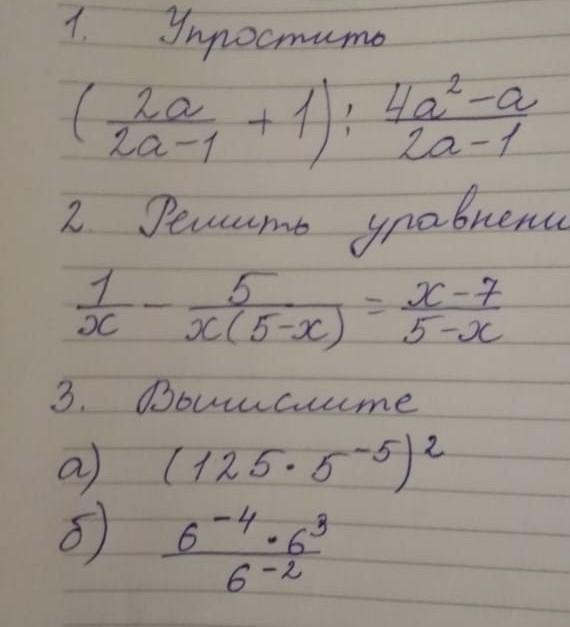 1. Упростить
(2a/(2a-1) + 1) : (4a²-a)/(2a-1)
2. Решить уравнени
1/x - 5/(x(5-x)) = (x-7)/(5-x)
3. Вычислите
а) (125·5⁻⁵)²
б) (6⁻⁴·6³)/6⁻²